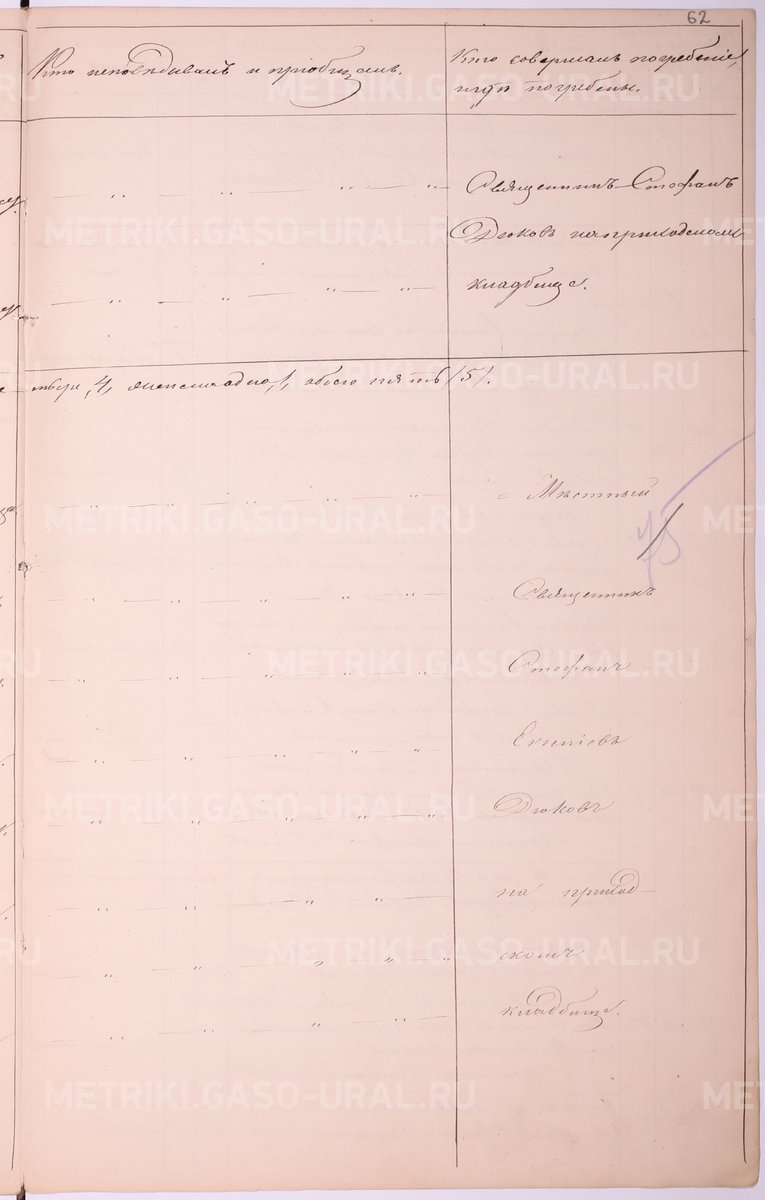 62
Кто исповѣдывалъ и приобщалъ.
Кто совершалъ погребеніе,
и гдѣ погребены.
Священникъ Стефанъ
Дюковъ на приходскомъ
кладбище.
тября, 4, женска одна, 1, обоего пять /5/.
Мѣстный
75
Священникъ
Стефанъ
Дюковъ
на приход-
скомъ
кладбище.
METRIKI.GASO-URAL.RU